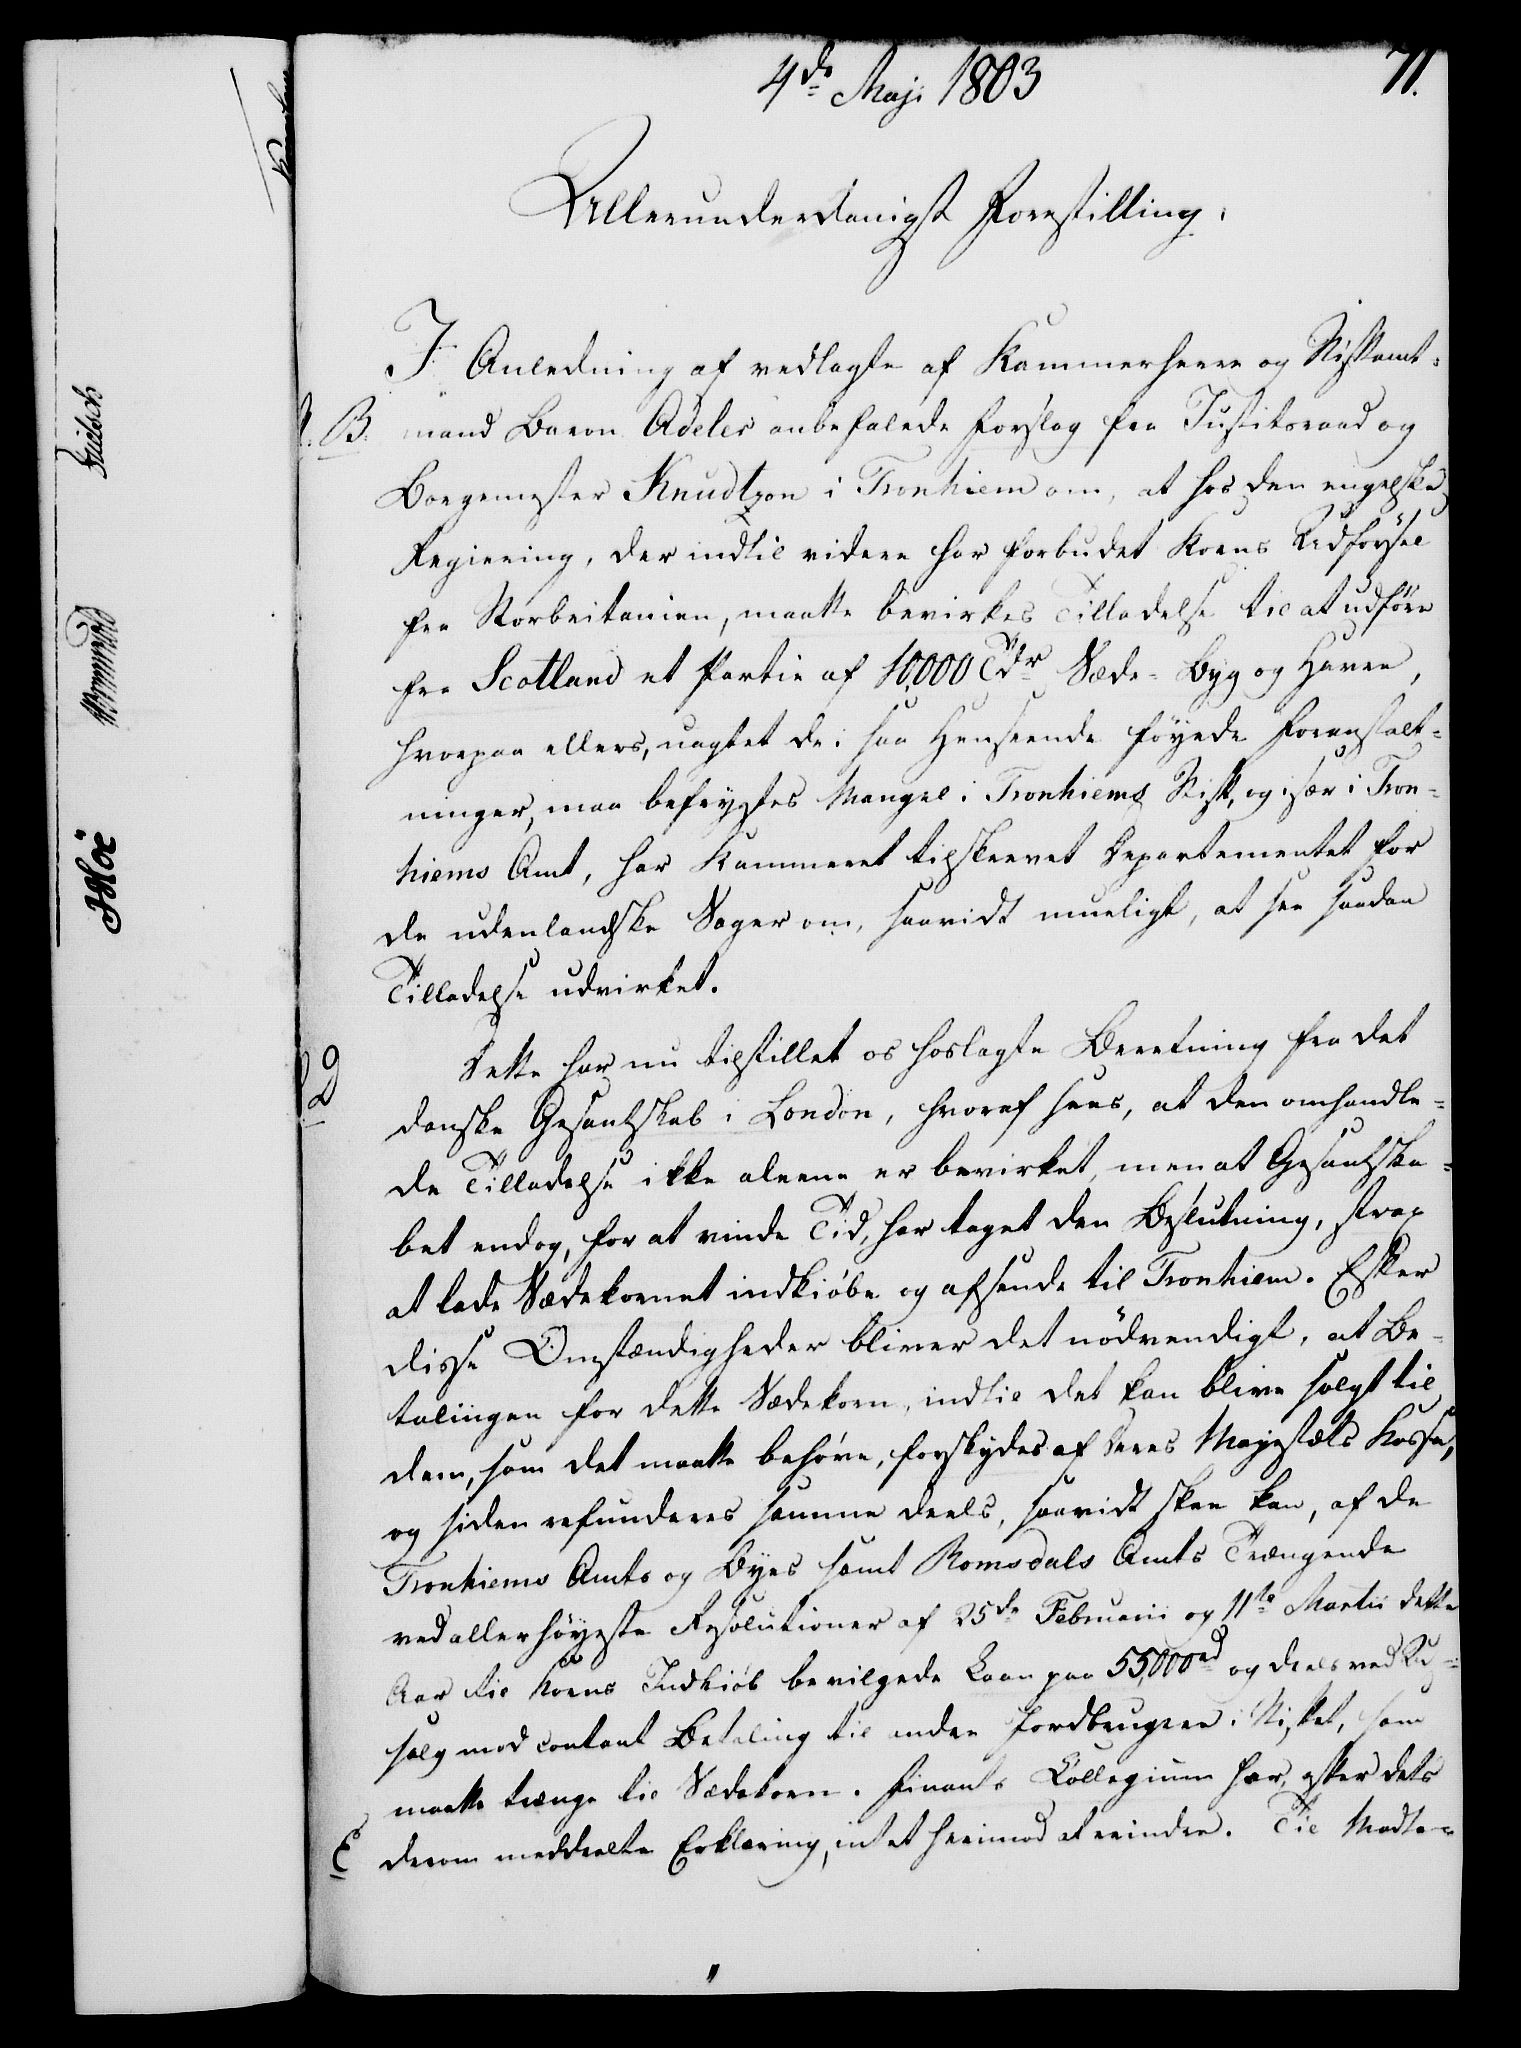 4de Maji 1803
71.
Allerunderdanigst Forestilling.
I Anledning af vedlagte af Kammerherre og Stiftamt-
A. B. mand Baron Adeler anbefalede Forslag fra Justitsraad og
Borgemester Knudtzon i Tronhiem om, at hos den engelske
Regiering, der indtil videre har forbudet Korns Udförsel
fra Storbritanien, maatte bevirkes Tilladelse til at udföre
fra Scotland et Partie af 10,000 Tdr Sæde-Byg og Havre,
hvorpaa ellers, uagtet de i saa Henseende föyede Foranstalt-
ninger, maa befrygtes Mangel i Tronhiems Stift, og især i Tron-
hiems Amt, har Kammeret tilskrevet Departementet for
de udenlandske Sager om, saavidt mueligt, at see saadan
Tilladelse udvirket.
Dette har nu tilstillet os hoslagte Beretning fra det
D danske Gesantskab i London, hvoraf sees, at den omhandle-
de Tilladelse ikke alene er bevirket, men at Gesantska-
bet endog, for at vinde Tid, har taget den Beslutning, strax
at lade Sædekornet indkiöbe og afsende til Tronhiem. Efter
disse Omstændigheder bliver det nödvendigt, at Be-
talingen for dette Sædekorn, indtil det kan blive solgt til
dem, som det maatte behöve, forskydes af Deres Majestæts Kasse,
og siden refunderes samme deels, saavidt skee kan, af de
Tronhiems Amts og Byes samt Romsdals Amts Trængende
ved allerhöyeste Resolutioner af 25de Februarii og 11te Martii dette
Aar til Korns Indkiöb bevilgede Laan paa 55,000 rd og deels ved Ud-
salg mod contant Betaling til andre Jordbrugere i Stiftet, som
maatte trænge til Sædekorn. Finants Collegium har, efter dets
E derom meddeelte Erklæring, intet herimod at erindre. Til Modta-
Fritsch
Höe